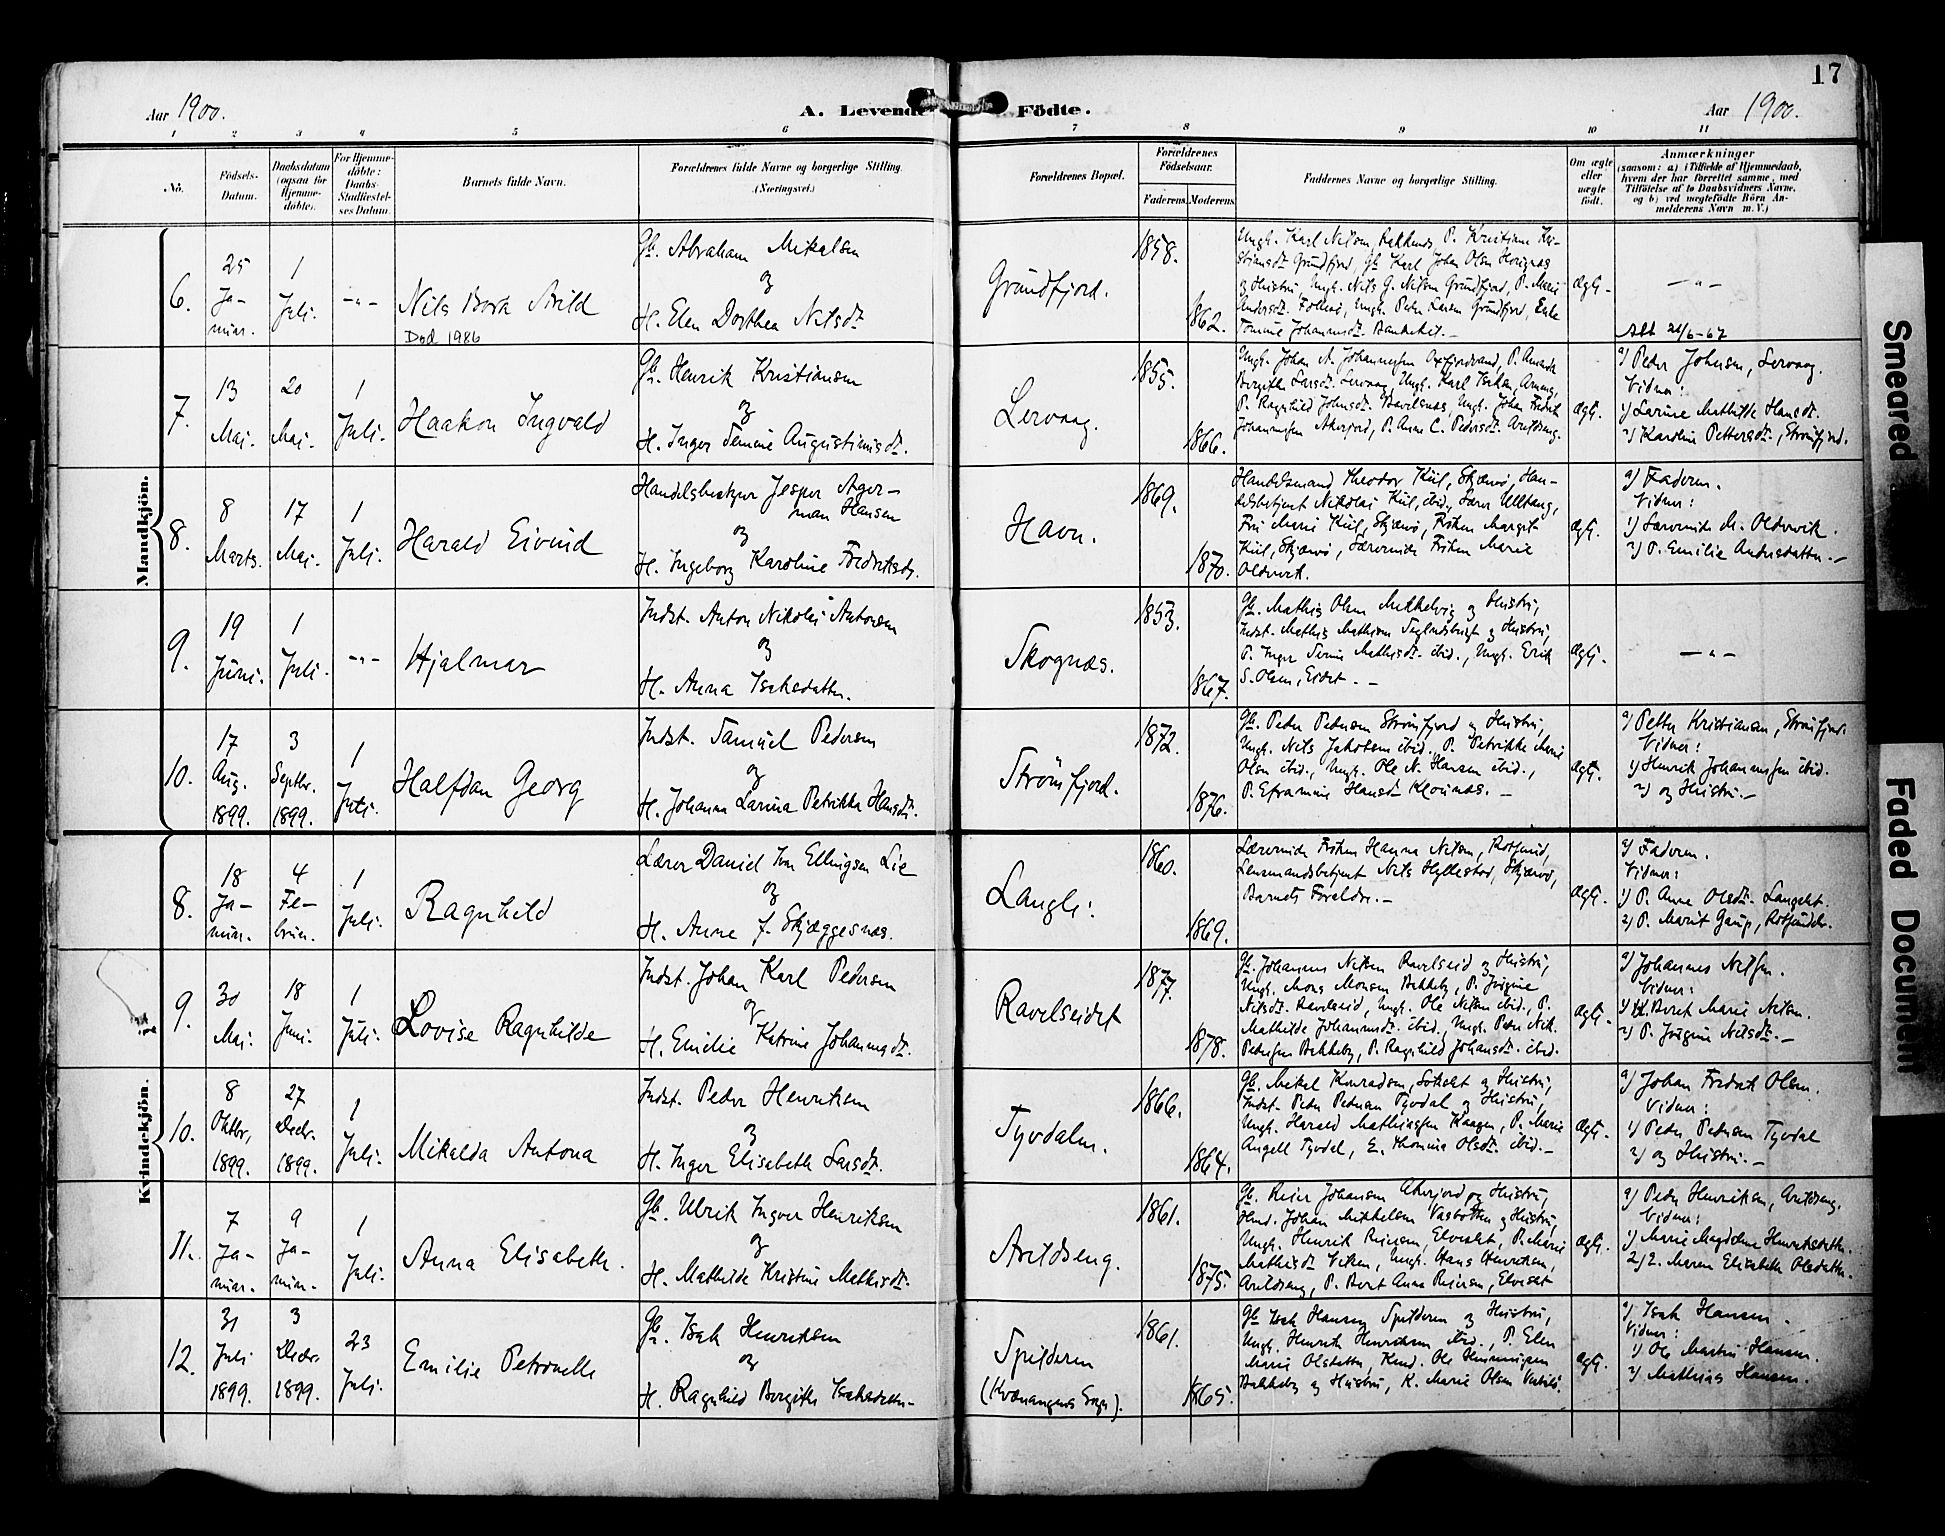 17
Aar 1900.
A. Levende Födte.
Aar 1900.
1 2 3 4 5 6 7 8 9 10 11
No.
Födsels-
Datum.
Daabsdatum
(ogsaa for
Hjemme-
döbte).
For Hjemme-
döbte:
Daabs-
Stadfæstel-
ses Datum.
Barnets fulde Navn.
Forældrenes fulde Navne og borgerlige Stilling.
(Næringsvei.)
Forældrenes Bopæl.
Forældrenes
Födselsaar.
Faderens.
Moderens.
Faddernes Navne og borgerlige Stilling.
Om ægte
eller
uægte
födt.
Anmærkninger
(saasom: a) i Tilfælde af Hjemmedaab,
hvem der har forrettet samme, med
Tilföielse af to Daabsvidners Navne,
og b) ved uægtefödte Börn An-
melderens Navn m. V.)
Mandkjön.
6.
25
Ja-
nuar.
1
Juli.
-"-
Nils Bork Arild
Død 1986
Gb. Abraham Mikalsen
og
H. Elen Dorthea Nilsdt.
Grundfjord.
1858.
1862.
Ungk. Karl Nilsen, P. Kristiane Kri-
stiansdt. Grundfjord, Gb. Karl Johan Olsen
og Hustru, Ungk. Nils G. Nilsen Grundfjord, P. Marie
Andersdt. Ungk. Peder Larsen Grundfjord, Enke
Johannesdt.
ægt.
-"-
Att 26/6-67
7.
13
Mai.
20
Mai.
1
Juli.
Haakon Ingvald
Gb. Henrik Kristiansen
og
H. Inger Semine Augustinusdt.
Lervaag.
1855.
1866.
Ungk. Johan A. Johannesen Oxfjordvand, P. Amanda
Bergithe Larsdt. Lervaag, Ungk. Karl Isaksen,
P. Ragnhild Johnsdt. Ravelsnæs, Ungk. Johan Fredrik
Johannesen Akerfjord, P. Anne C. Pedersdt. Arildseng.
ægt.
a) Peder Johnsen, Lervaag.
Vidner:
1) Larine Mathilde Hansdt.
2) Karoline Pettersdt., Strömfjord.
8.
8
Marts.
17
Mai.
1
Juli.
Harald Eivind
Handelsbestyrer Jesper Ager-
man Hansen
og
H. Ingeborg Karoline Fredriksdt.
Havn.
1869.
1870.
Handelsmand Theodor Kiil, Skjærvö, Han-
delsbetjent Nikolai Kiil, ibid., Lærer Ulltang,
Fru Marie Kiil, Skjærvö, Frøken Margit
Kiil, Skjærvö, Lærerinde Frøken Marie
Oldervik.
ægt.
a) Faderen.
Vidner:
1) Lærerinde M. Oldervik.
2) P. Emilie Andersdatter.-
9.
19
Juni.
1
Juli.
-"-
Hjalmar
Indst. Anton Nikolai Antonsen
og
H. Anna Isaksdatter.
Skognæs.
1853.
1867.
Gb. Mathis Olsen Mikkelvig og Hustru,
Indst. Mathis Mathisen og Hustru,
P. Inger Serine Mathisdt. ibid., Ungk. Erik
S. Olsen, Eidet.-
ægt.
-"-
10.
17
Aug.
1899.
3
Septbr.
1899.
1
Juli.
Halfdan Georg
Indst. Samuel Pedersen
og
H. Johanna Larina Petrikka Hansdt.
Strömfjord.
1872.
1876.
Gb. Peder Pedersen Strömfjord og Hustru,
Ungk. Nils Jakobsen ibid., P. Petrikke Marie
Olsen ibid., Ungk. Ole N. Hansen ibid.,
P. Eframine Hansdt. Klöunæs.-
ægt.
a) Petter Kristiansen, Strömfjord.
Vidner:
1) Henrik Johannesen ibid.
2) og Hustru.-
Kvindekjön.
8.
18
Ja-
nuar.
4
Fe-
bruar.
1
Juli.
Ragnhild
Lærer Daniel Ivar Ellingsen Lie
og
H. Anne f. Skjæggesnæs.
Langli.
1860.
1869.
Lærerinde Frøken Hanna Nilsen, Rotsund,
Lensmandsbetjent Nils Hyllestad, Skjærvö,
Barnets Forældre.-
ægt.
a) Faderen.
Vidner:
1) P. Anne Olsdt. Langslet.
2) P. Marit Gaup, Rotsundelv.
9.
30
Mai.
18
Juni.
1
Juli.
Lovise Ragnhilde
Indst. Johan Karl Pedersen
og
H. Emilie Katrine Johannesdt.
Ravelseidet
1877.
1878.
Gb. Johannes Nilsen Ravelseid og Hustru,
Ungk. Mons Monsen Bakkeby, P. Jörgine
Nilsdt. Ravelseid, Ungk. Ole Nilsen ibid., P.
Mathilde Johannesdt. ibid., Ungk. Peder Nik.
Pedersen Bakkeby, P. Ragnhild Johansdt. ibid.
ægt.
a) Johannes Nilsen.
Vidner:
1) H. Beret Marie Nilsen.
2) P. Jörgine Nilsdt.-
10.
8
Oktbr.
1899.
27
Decbr.
1899.
1
Juli.
Mikalda Antona
Indst. Peder Henriksen
og
H. Inger Elisabeth Larsdt.
Tyvdalen.
1866.
1864.
Gb. Mikal Konradsen, og Hustru,
Indst. Peder Pedersen Tyvdal og Hustru,
Ungk. Harald Mathiassen Kaagen, P. Marie
Angell Tyvdal, E. Thomine Olsdt. ibid.-
ægt.
a) Johan Fredrik Olsen.
Vidner:
1) Peder Pedersen Tyvdal
2) og Hustru.-
11.
7
Ja-
nuar.
9
Ja-
nuar.
1
Juli.
Anna Elisabeth.
Gb. Ulrik Ingver Henriksen
og
H. Mathilde Kristine Mathisdt.
Arildseng.
1861.
1875.
Gb. Reier Johansen Akerfjord og Hustru,
Johan Mikkelsen Vasbotten og Hustru,
Ungk. Henrik Reiersen, Elveslet, P. Marie
Mathisdt. Viken, Ungk. Hans Henriksen,
Arildseng, P. Beret Anna Reiersen, Elveslet
ægt.
a) Peder Henriksen, Arildseng.
Vidner:
1) Marie Magdelene Henriksdatter.
2) E. Maren Elisabeth Olsdatter.
12.
31
Juli
1899.
3
Decbr.
1899.
23
Juli.
Emilie Petronelle
Gb. Isak Henriksen
og
H. Ragnhild Bergithe Isaksdatter-
Spilderen
(Kvænangens Sogn).
1861.
1865.
Gb. Isak Hansen Spilderen og Hustru,
Ungk. Henrik Henriksen ibid., P. Elen
Marie Olsdatter, Ole Henningsen
Bakkeby og Hustru, K. Marie Olsen
ægt.
a) Isak Hansen.
Vidner:
1) Ole Martin Hansen.
2) Mathias Hansen.
Smeared
Faded Document